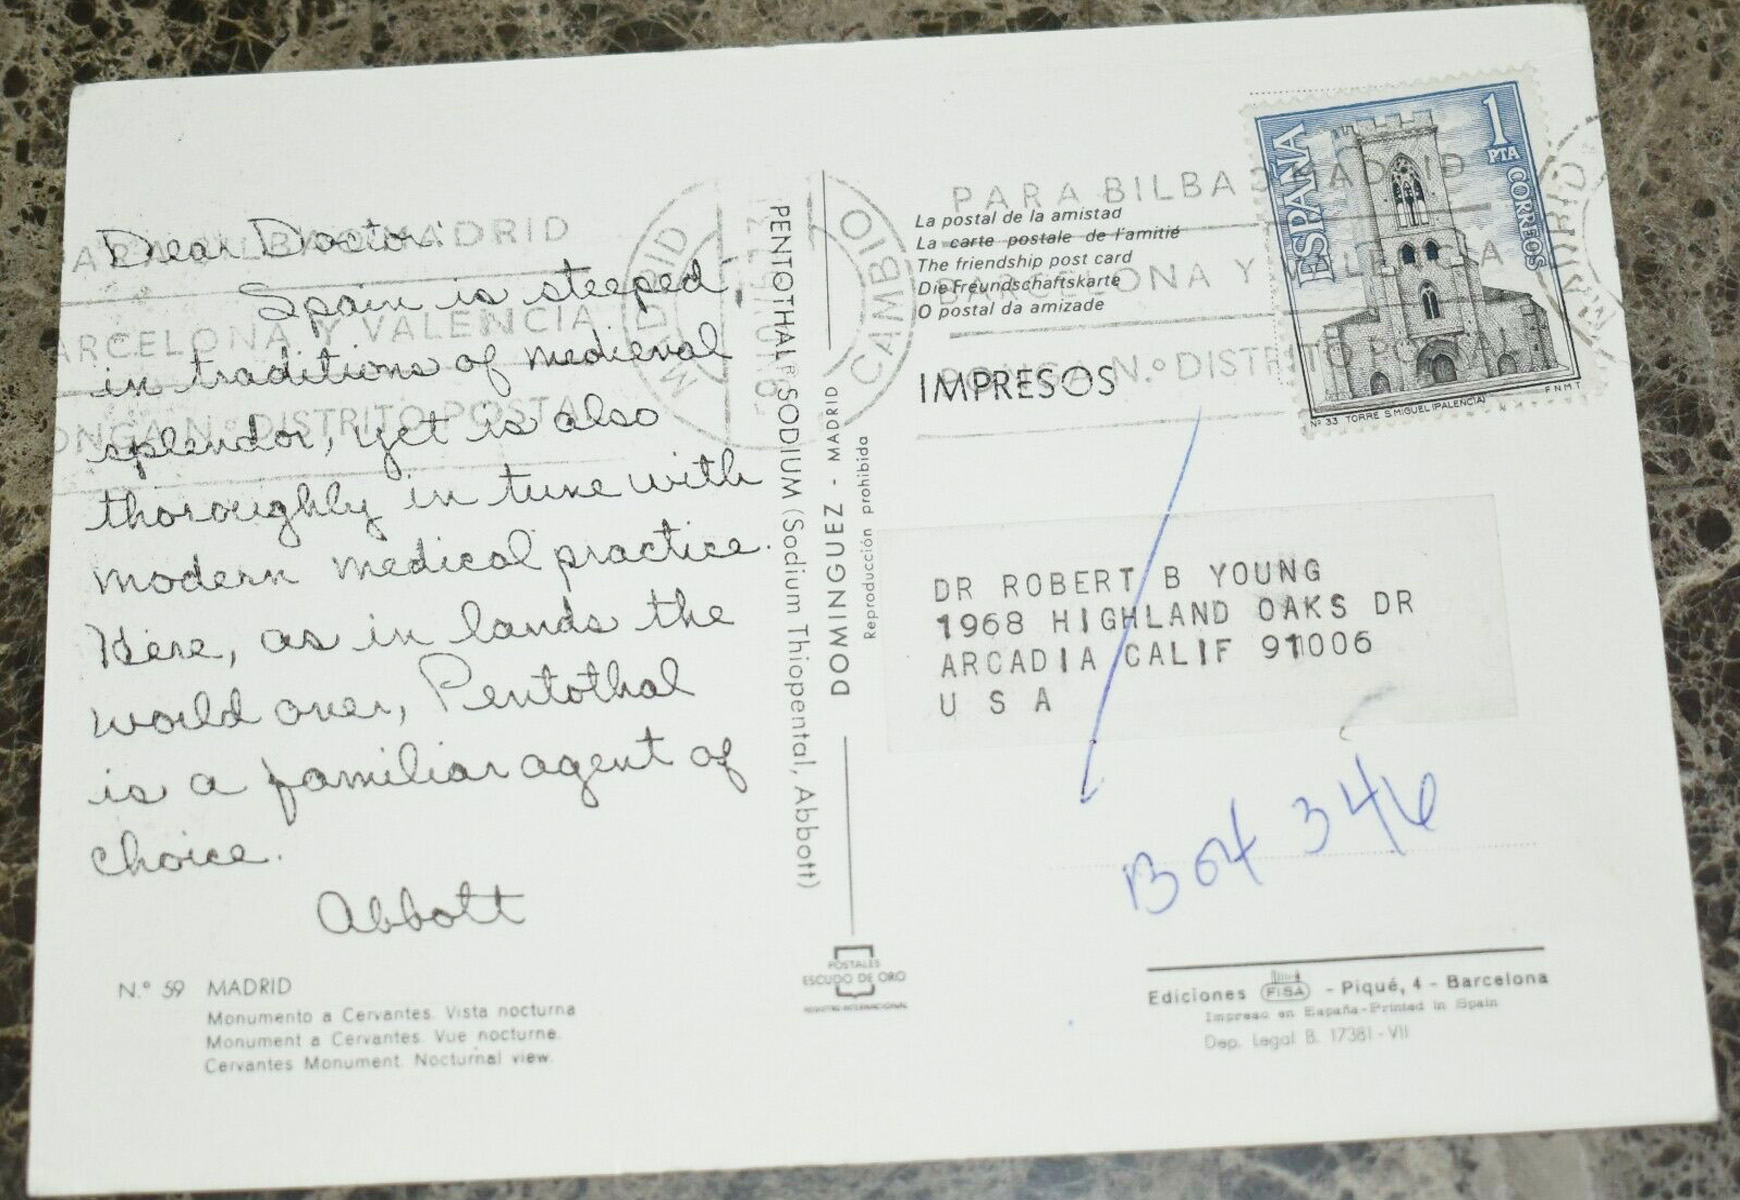 Dear Doctor:
Spain is steeped
in traditions of medieval
splendor, yet is also
thoroughly in tune with
modern medical practice.
Here, as in lands the
world over, Pentothal
is a familiar agent of
choice.
Abbott
N.º 59 MADRID
Monumento a Cervantes. Vista nocturna
Monument a Cervantes. Vue nocturne.
Cervantes Monument. Nocturnal view.
PENTOTHAL SODIUM (Sodium Thiopental, Abbott)
DOMINGUEZ - MADRID
Reproducción prohibida
POSTALES
ESCUDO DE ORO
REGISTRO INTERNACIONAL
MADRID
CAMBIO
PARA BILBAO MADRID
BARCELONA Y VALENCIA
PONGA N.º DISTRITO POSTAL
La postal de la amistad
La carte postale de l'amitié
The friendship post card
Die Freundschaftskarte
O postal da amizade
IMPRESOS
ESPAÑA
1
PTA
CORREOS
Nº 33 TORRE S MIGUEL (PALENCIA) F.N.M.T
PARA BILBAO MADRID
BARCELONA Y VALENCIA
PONGA N.º DISTRITO POSTAL
MADRID
DR ROBERT B YOUNG
1968 HIGHLAND OAKS DR
ARCADIA CALIF 91006
U S A
Box 346
Ediciones FISA - Piqué, 4 - Barcelona
Impreso en España-Printed in Spain
Dep. Legal B. 17381-VII